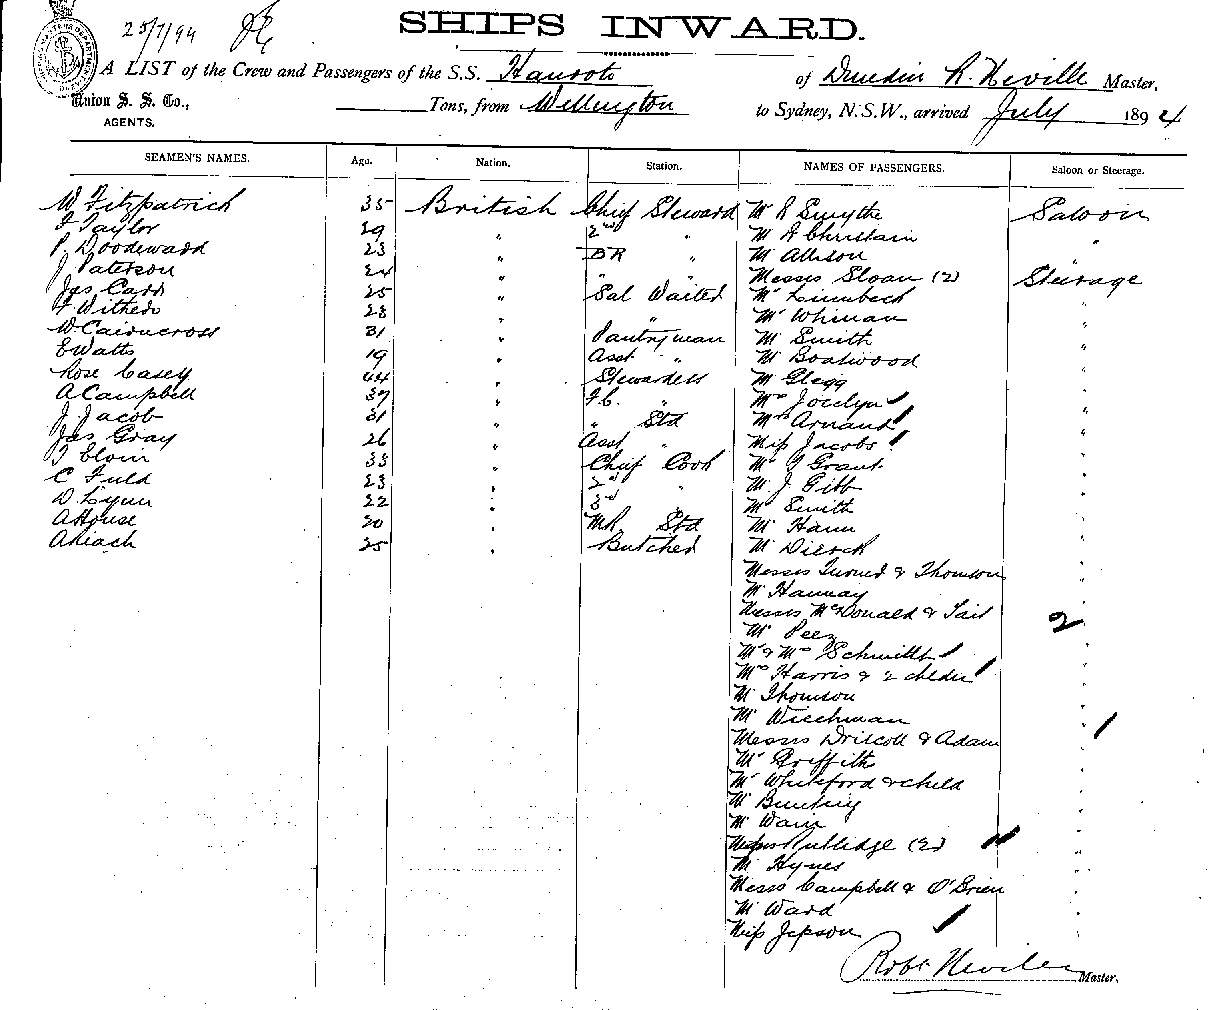 25/7/94
SHIPS INWARD.
A LIST of the Crew and Passengers of the S.S. Hauroto of Dunedin R. Neville Master,
Union S. S. Co., Tons, from Wellington to Sydney, N.S.W., arrived July 1894
AGENTS.
SEAMEN'S NAMES. Age. Nation. Station. NAMES OF PASSENGERS. Saloon or Steerage.
W Fitzpatrick 35 British Chief Steward Mr R Smythe Saloon
F Taylor 29 " 2nd " Mr R Christain "
P. Woodeward 23 " BR " Mr Allison
J Paterson 24 " " " Messrs Sloan (2) Steerage
Jas Carr 25 " Sal Waiter Mr Limbeck "
F Withers 23 " " Mr Whiman "
W Cairncross 31 " Pantryman Mr Smith "
E Watts 19 " Asst " Mr Boatwood "
Rose Casey 44 " Stewardess Mr Glegg "
A Campbell 37 " F.C. " Mrs Jocelyn "
J. Jacob 31 " " Std Mrs Arnand "
Jas Gray 26 " Asst " Miss Jacobs "
T Elvin 33 " Chief Cook Mr G Grant "
C Fuld 23 " 2nd " Mr J Gibb "
D. Lynn 22 " 3rd Mr Smith "
A House 20 " MR Std Mr Hann "
A Riach 25 " Butcher Mr Dierck "
Messrs Turner & Thomson "
Mr Hannay "
Messrs McDonald & Tait 2
Mr Peez "
Mr & Mrs Schmitt "
Mrs Harris & 2 childer "
Mr Thomson "
Mr Wiechman "
Messrs Driscoll & Adam "
Mr Griffith "
Mr Whiteford & child "
Mr Bunting "
Mr Wain "
Misses Rutledge (2) "
Mr Hynes "
Messrs Campbell & O'Brien "
Mr Ward "
Miss Jepson "
Robt Neville Master.